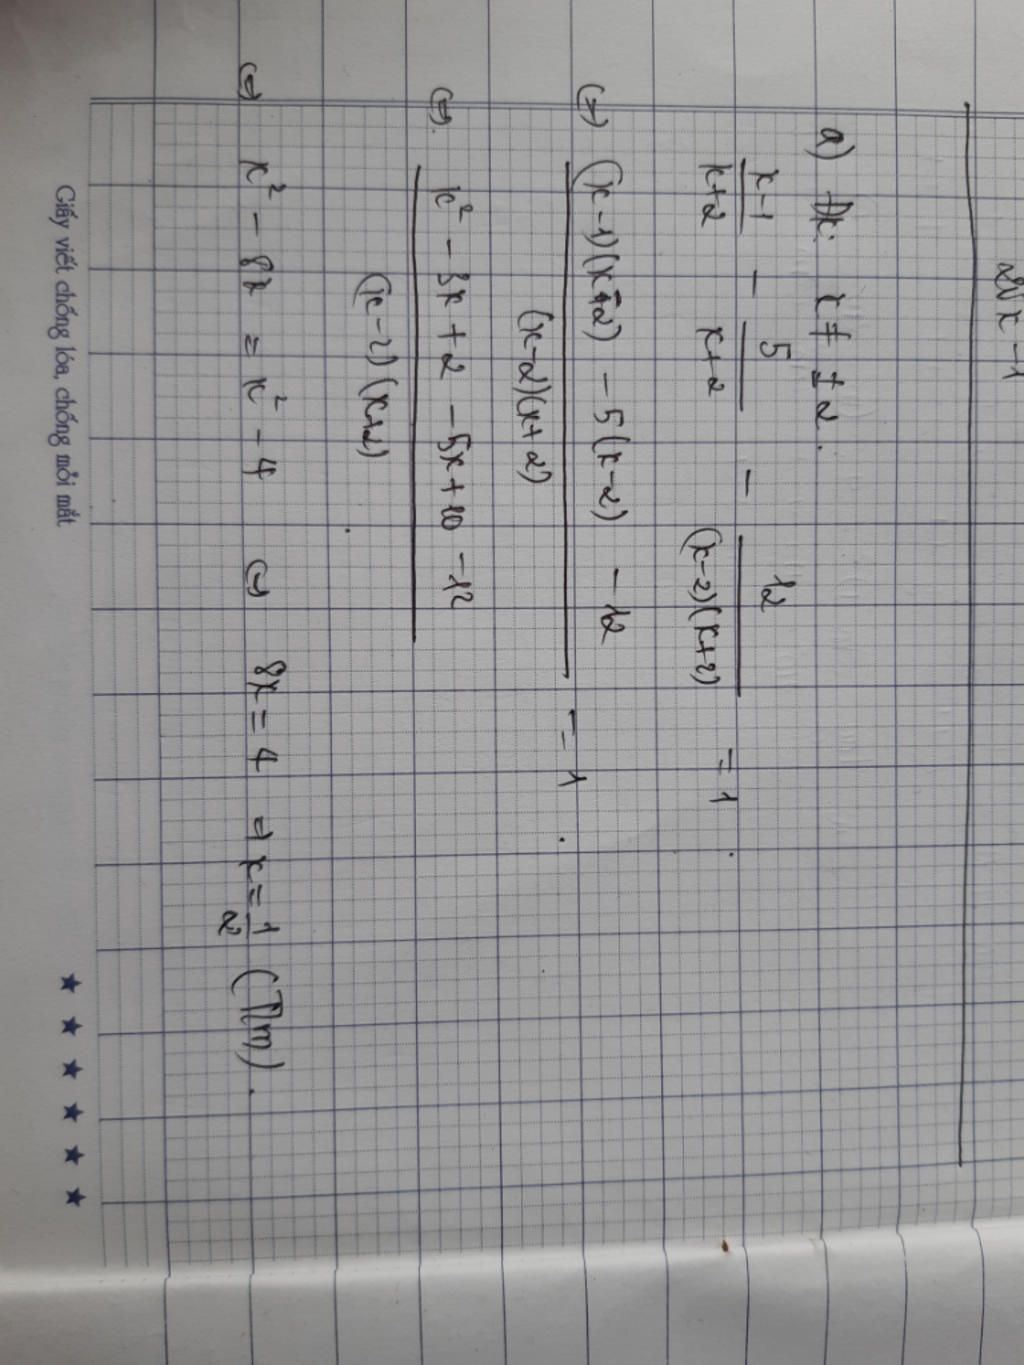 2√x - 1
a) Đk: x ≠ ±2.
x-1/x+2 - 5/x+2 - 12/(x-2)(x+2) = 1
(=) (x-1)(x-2) - 5(x-2) - 12/(x-2)(x+2) = 1
(=) x² - 3x + 2 - 5x + 10 - 12/(x-2)(x+2)
(=) x² - 8x = x² - 4 (=) 8x = 4 => x = 1/2 (Tm).
Giấy viết chống lóa, chống mỏi mắt ★ ★ ★ ★ ★ ★